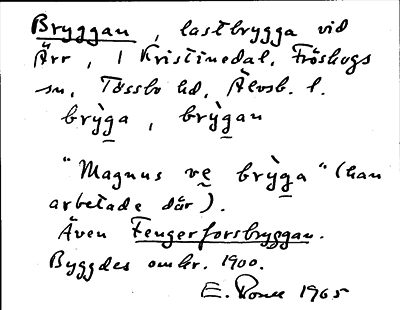 Bryggan, lastbrygga vid
Ärr, i Kristinedal, Fröskogs
sn, Tössbo hd, Älvsb. l.
brỳga, brỳgan
"Magnus ve brỳga" (han
arbetade där).
Även Fengerforsbryggan.
Byggdes omkr. 1900.
E. 1965